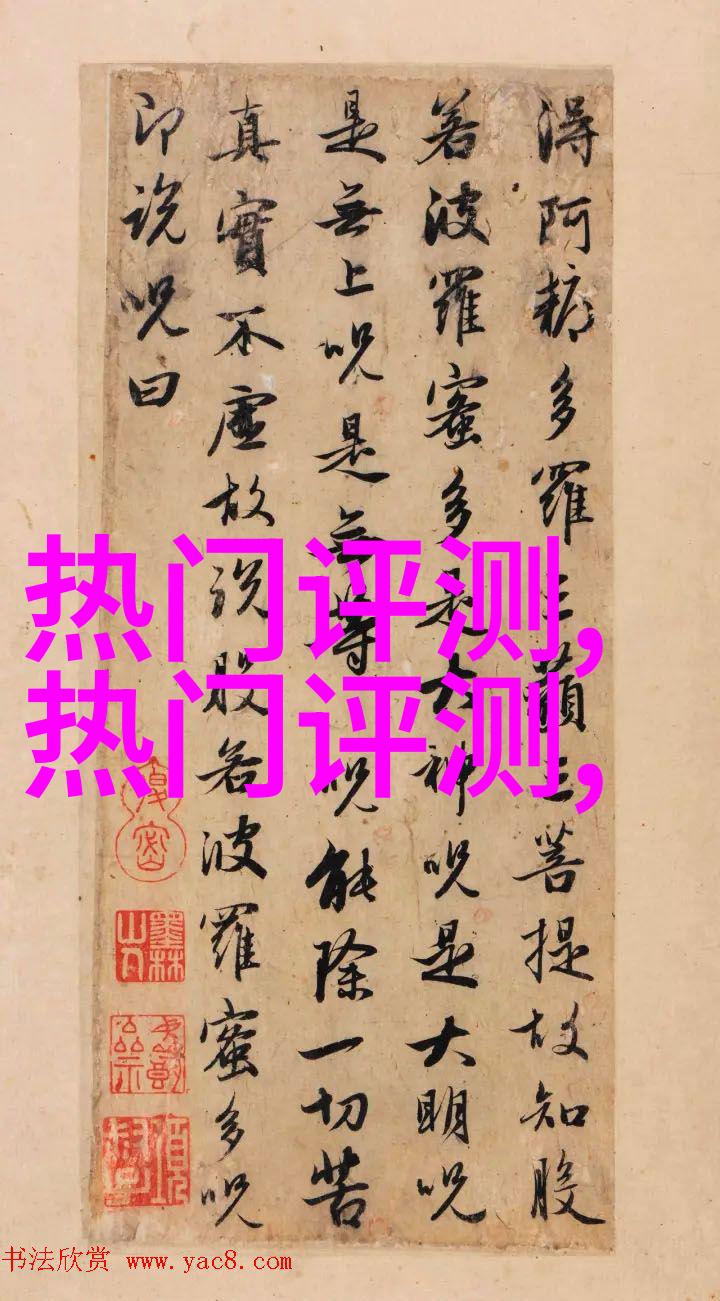 得阿耨多羅三藐三菩提故知般
若波羅蜜多是大神呪是大明呪
是無上呪是無等呪能除一切苦
真實不虛故說般若波羅蜜多呪
即說呪曰
热门评测,
热门评测,
墨林
书法欣赏 www.yac8.com